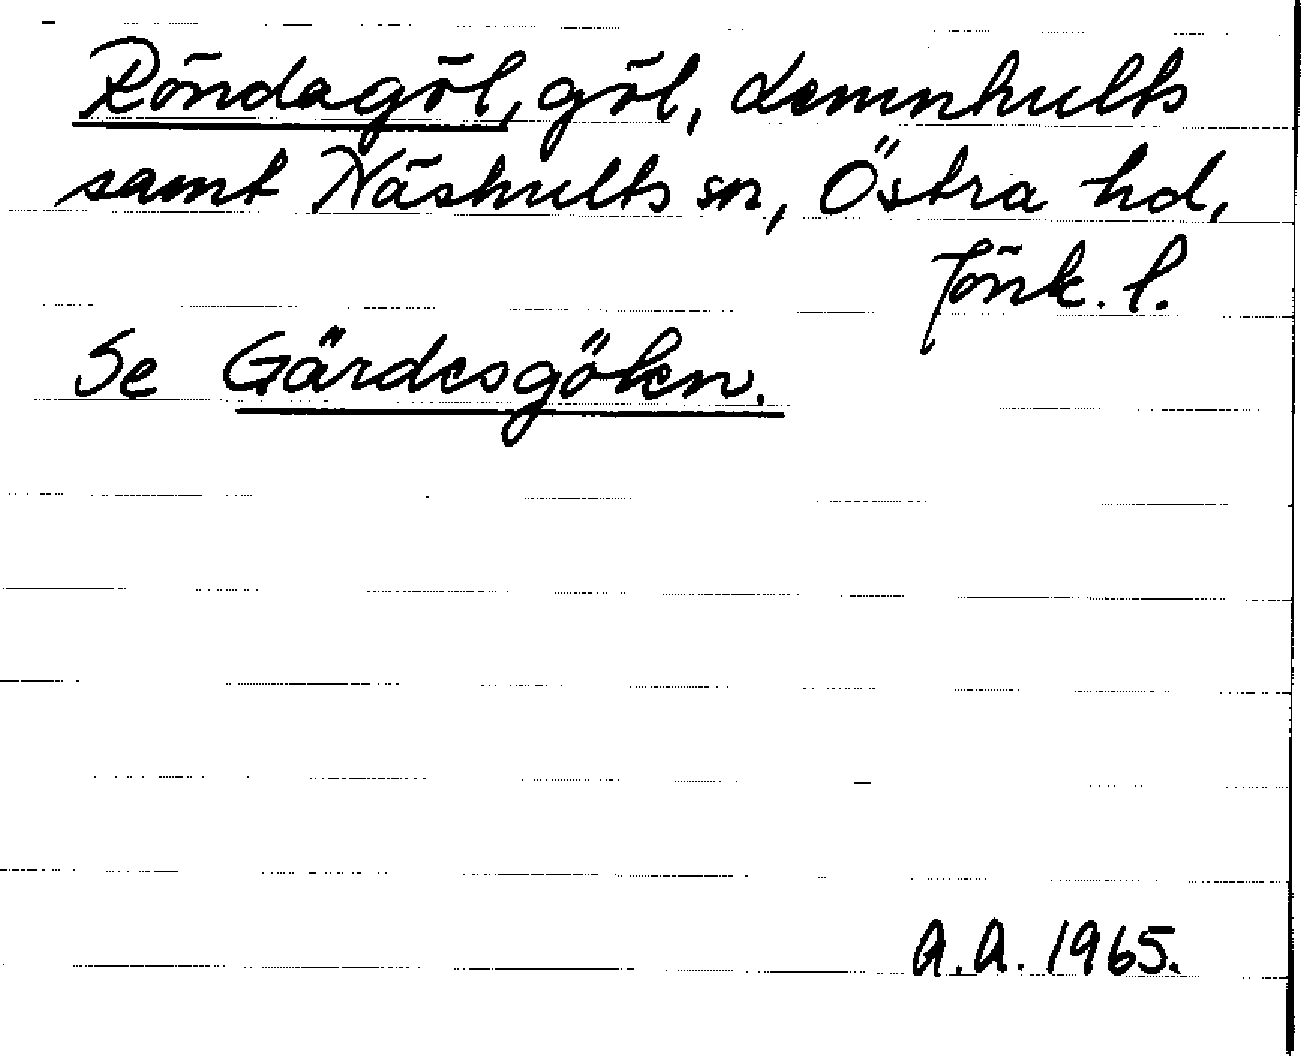 Röndagöl, göl, Lemnhults
samt Näshults sn, Östra hd,
Jönk. l.
Se Gärdesgölen.
A.A. 1965.